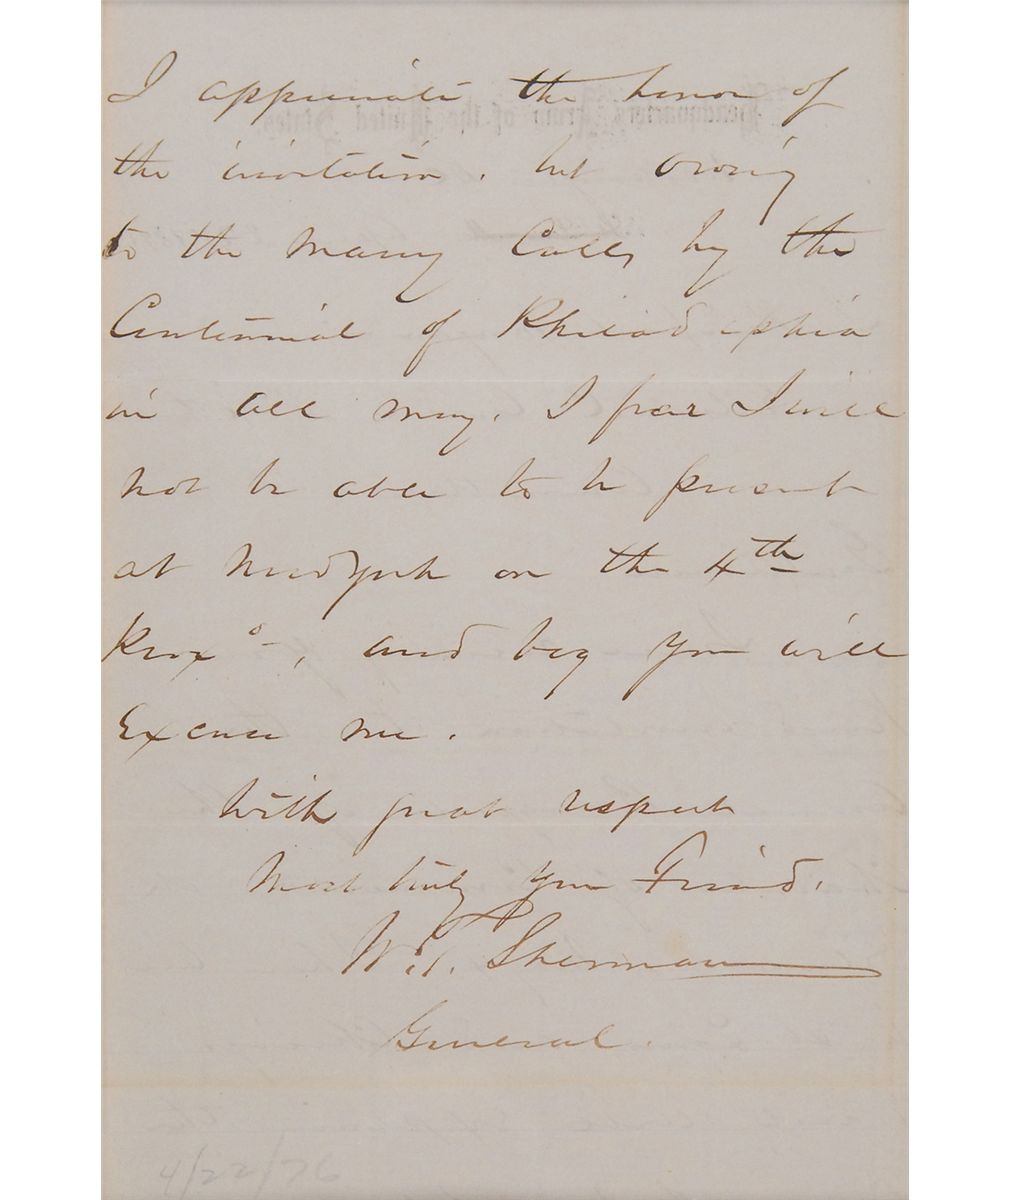 I appreciate the honor of
the invitation. but owing
to the many Calls by the
Centennial of Philadelphia
in all May. I fear I will
not be able to be present
at New York on the 4th
Prox°, and beg you will
Excuse me.
With great respect
Most truly your Friend.
W.T. Sherman
General.
4/22/76